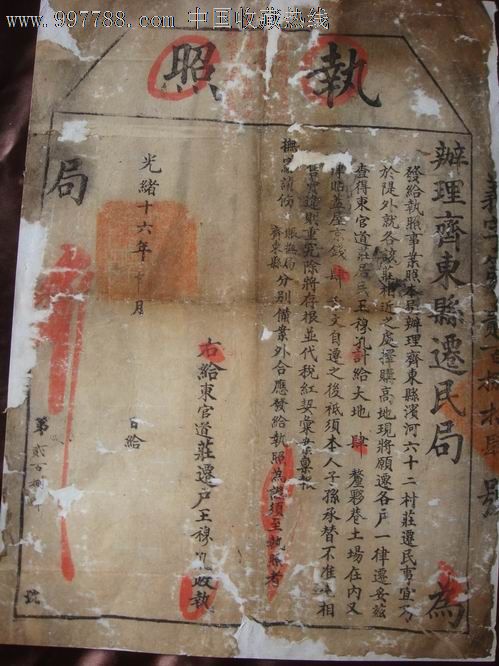 www.997788.com 中国收藏热线
執照
辦理齊東縣遷民局 為
發給執照事業照本局辦理齊東縣濱河六十二村莊遷民事宜乃
於隄外就各該莊相近之處擇購高地現將願遷各戶一律遷妥茲
查得東官道莊居民王穆孔計給大地 肆 釐夥巷土場在內又
津貼蓋屋京錢 肆 文自遷之後祇須本人子孫承替不准
遷 則重究除將存根並代稅紅契彙 稟報
撫 請飭 賑撫局 齊東縣 分別備案外合應發給執照為 須至執照者
右給東官道莊遷戶王穆孔收執
光緒十六年 月 日給
局 第貳百 號